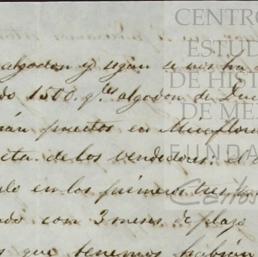 algodon y segun se me ha d
do 1500 q.les algodon de
rán puestos en Miraflores
ita de los vendedores. el
lo en los primeros tres
ado con 3 meses de plazo
s que tenemos habian
CENTRO
ESTUD
DE HIST
DE ME
FUNDA
Carlos